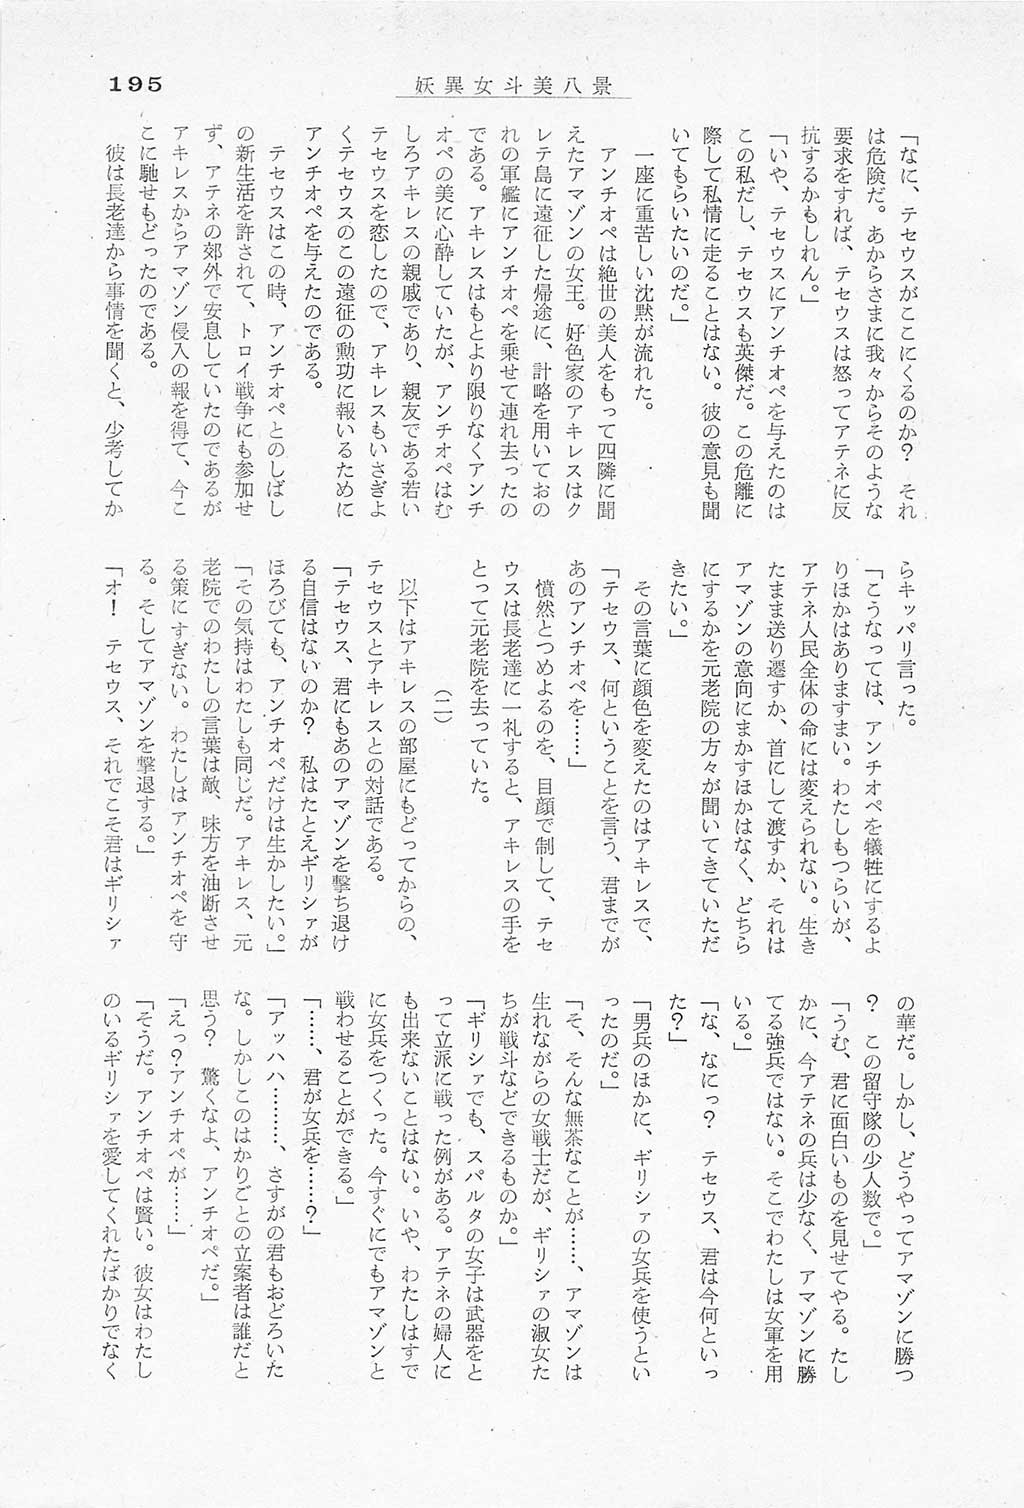 195
妖異女斗美八景
「なに、テセウスがここにくるのか？　それ
は危険だ。あからさまに我々からそのような
要求をすれば、テセウスは怒ってアテネに反
抗するかもしれん。」
「いや、テセウスにアンチオペを与えたのは
この私だし、テセウスも英傑だ。この危離に
際して私情に走ることはない。彼の意見も聞
いてもらいたいのだ。」
　一座に重苦しい沈黙が流れた。
　アンチオペは絶世の美人をもって四隣に聞
えたアマゾンの女王。好色家のアキレスはク
レテ島に遠征した帰途に、計略を用いておの
れの軍艦にアンチオペを乗せて連れ去ったの
である。アキレスはもとより限りなくアンチ
オペの美に心酔していたが、アンチオペはむ
しろアキレスの親戚であり、親友である若い
テセウスを恋したので、アキレスもいさぎよ
くテセウスのこの遠征の勲功に報いるために
アンチオペを与えたのである。
　テセウスはこの時、アンチオペとのしばし
の新生活を許されて、トロイ戦争にも参加せ
ず、アテネの郊外で安息していたのであるが
アキレスからアマゾン侵入の報を得て、今こ
こに馳せもどったのである。
　彼は長老達から事情を聞くと、少考してか
らキッパリ言った。
「こうなっては、アンチオペを犠牲にするよ
りほかはありますまい。わたしもつらいが、
アテネ人民全体の命には変えられない。生き
たまま送り還すか、首にして渡すか、それは
アマゾンの意向にまかすほかはなく、どちら
にするかを元老院の方々が聞いてきていただ
きたい。」
　その言葉に顔色を変えたのはアキレスで、
「テセウス、何ということを言う、君までが
あのアンチオペを……」
　憤然とつめよるのを、目顔で制して、テセ
ウスは長老達に一礼すると、アキレスの手を
とって元老院を去っていた。
（二）
　以下はアキレスの部屋にもどってからの、
テセウスとアキレスとの対話である。
「テセウス、君にもあのアマゾンを撃ち退け
る自信はないのか？　私はたとえギリシァが
ほろびても、アンチオペだけは生かしたい。」
「その気持はわたしも同じだ。アキレス、元
老院でのわたしの言葉は敵、味方を油断させ
る策にすぎない。わたしはアンチオペを守
る。そしてアマゾンを撃退する。」
「オ！　テセウス、それでこそ君はギリシァ
の華だ。しかし、どうやってアマゾンに勝つ
？　この留守隊の少人数で。」
「うむ、君に面白いものを見せてやる。たし
かに、今アテネの兵は少なく、アマゾンに勝
てる強兵ではない。そこでわたしは女軍を用
いる。」
「な、なにっ？　テセウス、君は今何といっ
た？」
「男兵のほかに、ギリシァの女兵を使うとい
ったのだ。」
「そ、そんな無茶なことが……、アマゾンは
生れながらの女戦士だが、ギリシァの淑女た
ちが戦斗などできるものか。」
「ギリシァでも、スパルタの女子は武器をと
って立派に戦った例がある。アテネの婦人に
も出来ないことはない。いや、わたしはすで
に女兵をつくった。今すぐにでもアマゾンと
戦わせることができる。」
「……、君が女兵を……？」
「アッハハ………、さすがの君もおどろいた
な。しかしこのはかりごとの立案者は誰だと
思う？　驚くなよ、アンチオペだ。」
「えっ？アンチオペが……」
「そうだ。アンチオペは賢い。彼女はわたし
のいるギリシァを愛してくれたばかりでなく